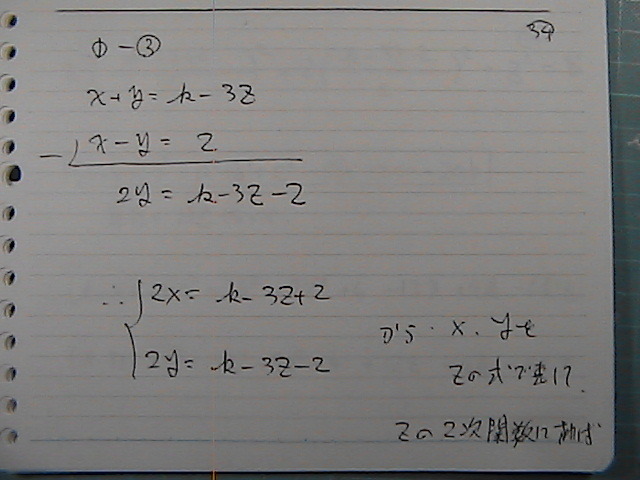 34
① - ③
x + y = k - 3z
- ) x - y = 2
2y = k - 3z - 2
∴ { 2x = k - 3z + 2
2y = k - 3z - 2
から. x、yを
zの式で表して
zの2次関数にすれば